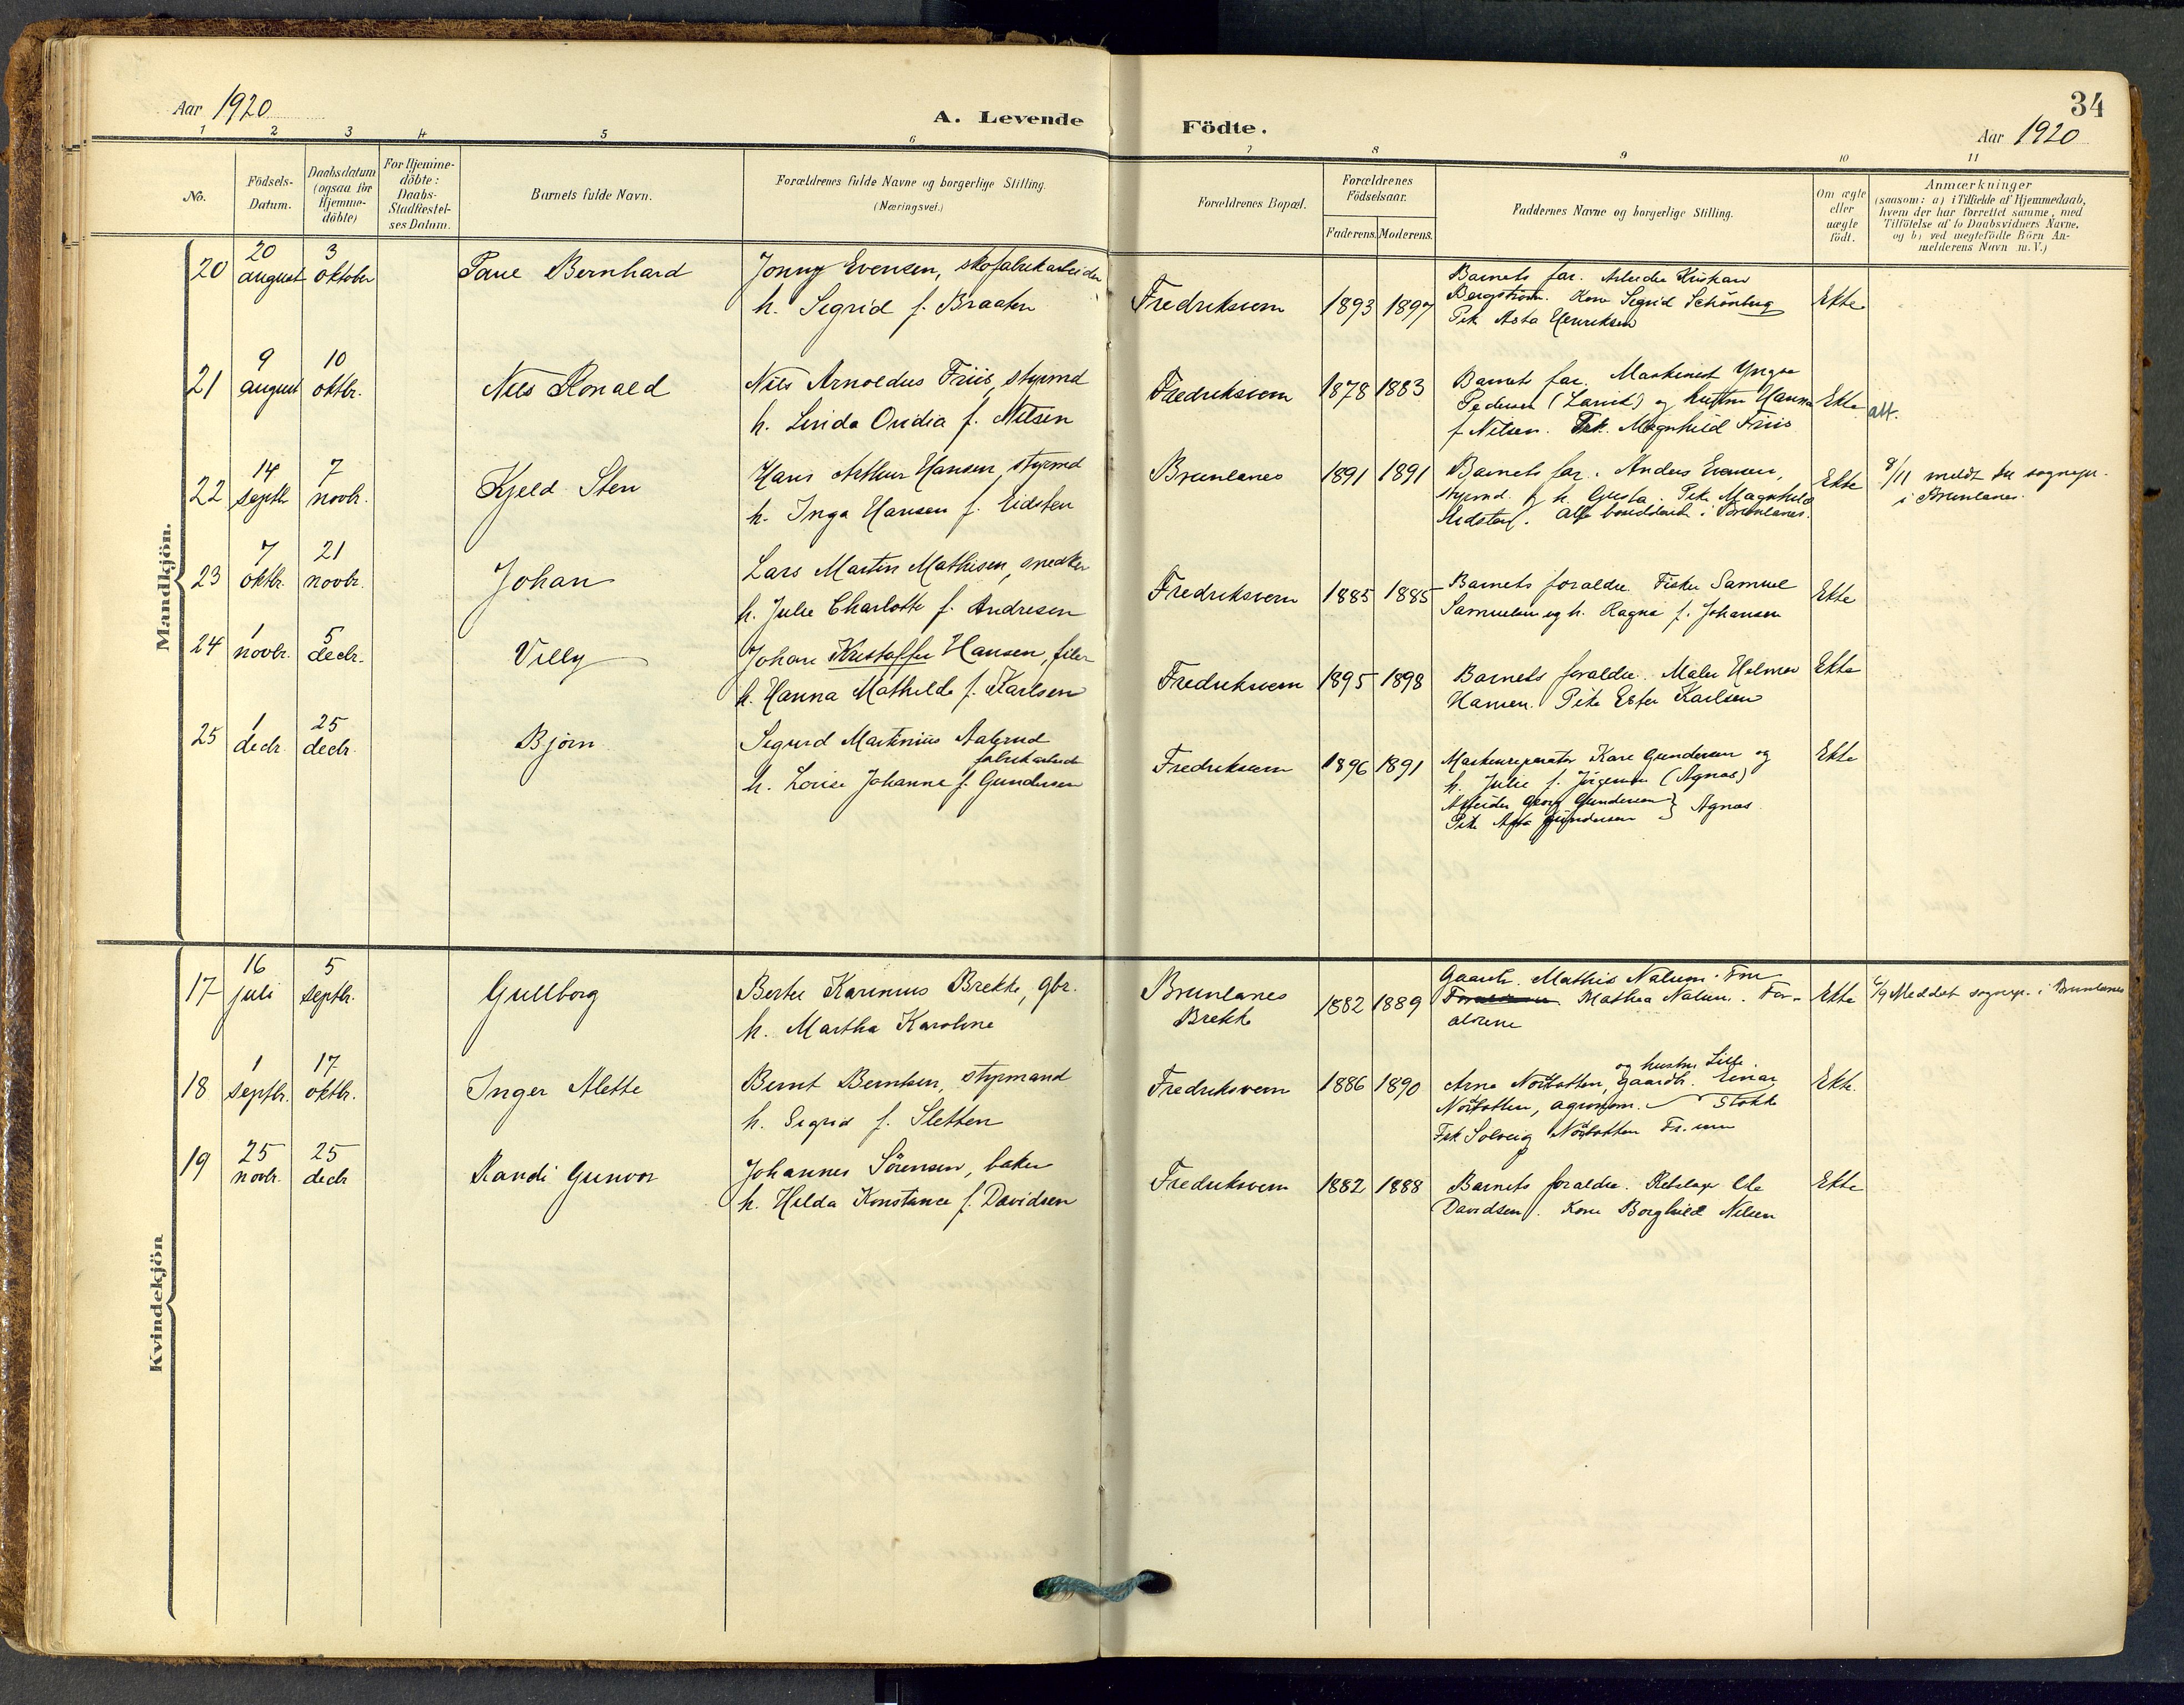 34
Aar 1920
A. Levende Födte.
Aar 1920
1 2 3 4 5 6 7 8 9 10 11
No.
Födsels-
Datum.
Daabsdatum
(ogsaa for
Hjemme-
döbte)
For Hjemme-
döbte:
Daabs-
Stadfæstel-
ses Datum.
Barnets fulde Navn.
Forældrenes fulde Navne og borgerlige Stilling.
(Næringsvei.)
Forældrenes Bopæl.
Forældrenes
Födselsaar.
Faderens. Moderens.
Faddernes Navne og borgerlige Stilling.
Om ægte
eller
uægte
födt.
Anmærkninger
(saasom: a) i Tilfælde af Hjemmedaab,
hvem der har forrettet samme, med
Tilföielse af to Daabsvidners Navne.
og b) ved uægtefödte Börn An-
melderens Navn m. V.)
Mandkjön.
20
20
august
3
oktober
Bernhard
Jonny Evensen, skofabrikarbeider
h. Sigrid f. Braaten
Fredriksvern
1893 1897
Barnets far. Arbeider Kristian
Bergstrøm. Kone Sigrid Schönberg
Pik Asta Henriksen
Ekte
21
9
august
10
oktbr.
Nils Ronald
Nils Arnoldus Friis, styrmd
h. Linda Ovidia f. Nilsen
Fredriksvern
1878 1883
Barnets far. Maskinist Yngve
Pedersen (Larvik) og hustru Hanna
f. Nilsen. Frk. Magnhild Friis
Ekte
att.
22
14
septb
7
novbr.
Kjeld Sten
Hans Arthur Hansen, styrmd
h. Inga Hansen f. Eidsten
Brunlanes
1891 1891
Barnets far. Anders Evensen,
styrmd. og h. Gusta. Pike Magnhild
Eidsten. Alle i Brunlanes.
Ekte
8/11 meldt til sognepr.
i Brunlanes.
23
7
oktbr.
21
novbr.
Johan
Lars Martin Mathisen, snedker
h. Julie Charlotte f. Andresen
Fredriksvern
1885 1885
Barnets foraldre. Fisker Samuel
Samuelsen og h. Ragna f. Johansen
Ekte
24
1
novbr.
5
decbr.
Villy
Johan Kristoffer Hansen, filer
h. Hanna Mathilde f. Karlsen
Fredriksvern
1895 1898
Barnets foraldre. Maler Helmer
Hansen. Pike Ester Karlsen
Ekte
25
1
decbr.
25
decbr.
Bjørn
Sigurd Martinius Aalerud
fabrikarbeider
h. Lovise Johanne f. Gundersen
Fredriksvern
1896 1891
Maskinreparatør Kare Gundersen og
h. Julie f. Jørgensen (Agnas)
Arbeider Georg Gundersen
Pike Asta Gundersen } Agnas.
Ekte
Kvindekjön
17
16
juli
5
septbr.
Gullborg
Berter Karinius Brekke, gbr.
h. Martha Karoline
Brunlanes
Brekke
1882 1889
Gaardb. Mathis Nalum. Fru
Mathea Nalum. For-
aldrene
Ekte
6/9 Meddelt sognepr. i Brunlanes
18
1
septbr.
17
oktbr.
Inger Alette
Bernt Berntsen, styrmand
h. Sigrid f. Sletten
Fredriksvern
1886 1890
og hustru Lilli.
Arne Nordbotten, gaardbr. Einar
Nordbotten, agronom. Stokke
Frk Solveig Nordbotten
Ekte.
19
25
novbr.
25
decbr
Randi Gunvor
Johannes Sørensen, baker
h. Hilda Konstance f. Davidsen
Fredriksvern
1882 1888
Barnets foraldre. Ole
Davidsen. Kone Borghild Nilsen
Ekte